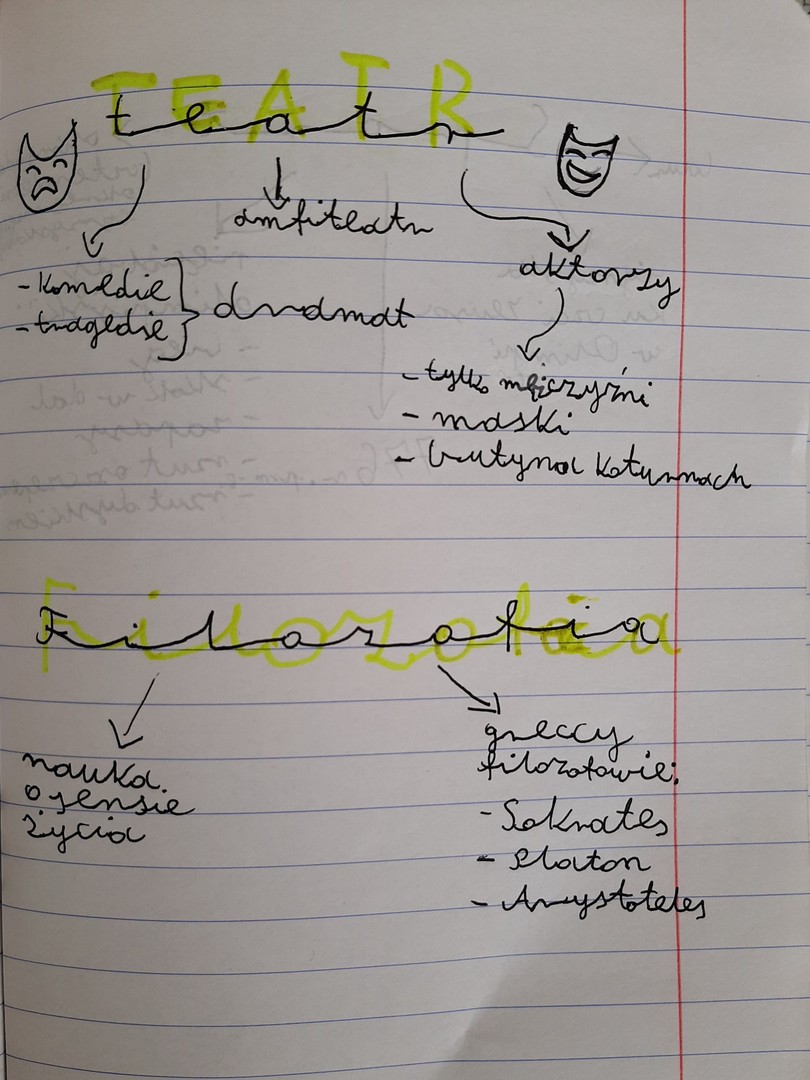 TEATR
teatr
amfiteatr
- komedie
- tragedie
dramat
aktorzy
- tylko mężczyźni
- maski
- buty na koturnach
Filozofia
Filozofia
nauka
o sensie
życia
greccy
filozofowie:
- Sokrates
- Platon
- Arystoteles